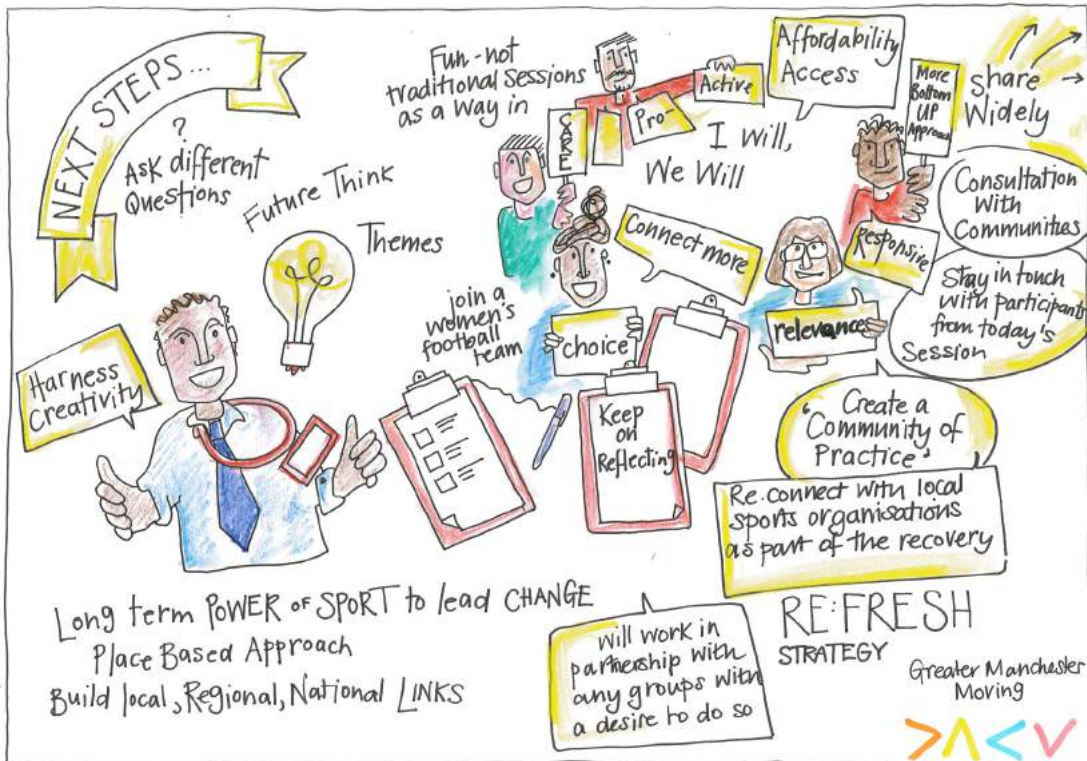 NEXT STEPS...
?
Ask different
Questions
Future Think
Themes
Harness
Creativity
Fun - not
traditional Sessions
as a way in
CARE
Pro-
Active
I will,
We Will
Affordability
Access
More
Bottom
UP
Approach
Share
Widely
Consultation
With
Communities
Responsive
Stay in touch
with participants
from today's
Session
Connect more
relevances
choice
join a
women's
football
team
Keep
on
Reflecting
Create a
'Community of
Practice'
Re.connect with local
sports organisations
as part of the recovery
Long term POWER of SPORT to lead CHANGE
Place Based Approach
Build local, Regional, National LINKS
Will work in
partnership with
any groups with
a desire to do so
RE:FRESH
STRATEGY
Greater Manchester
Moving